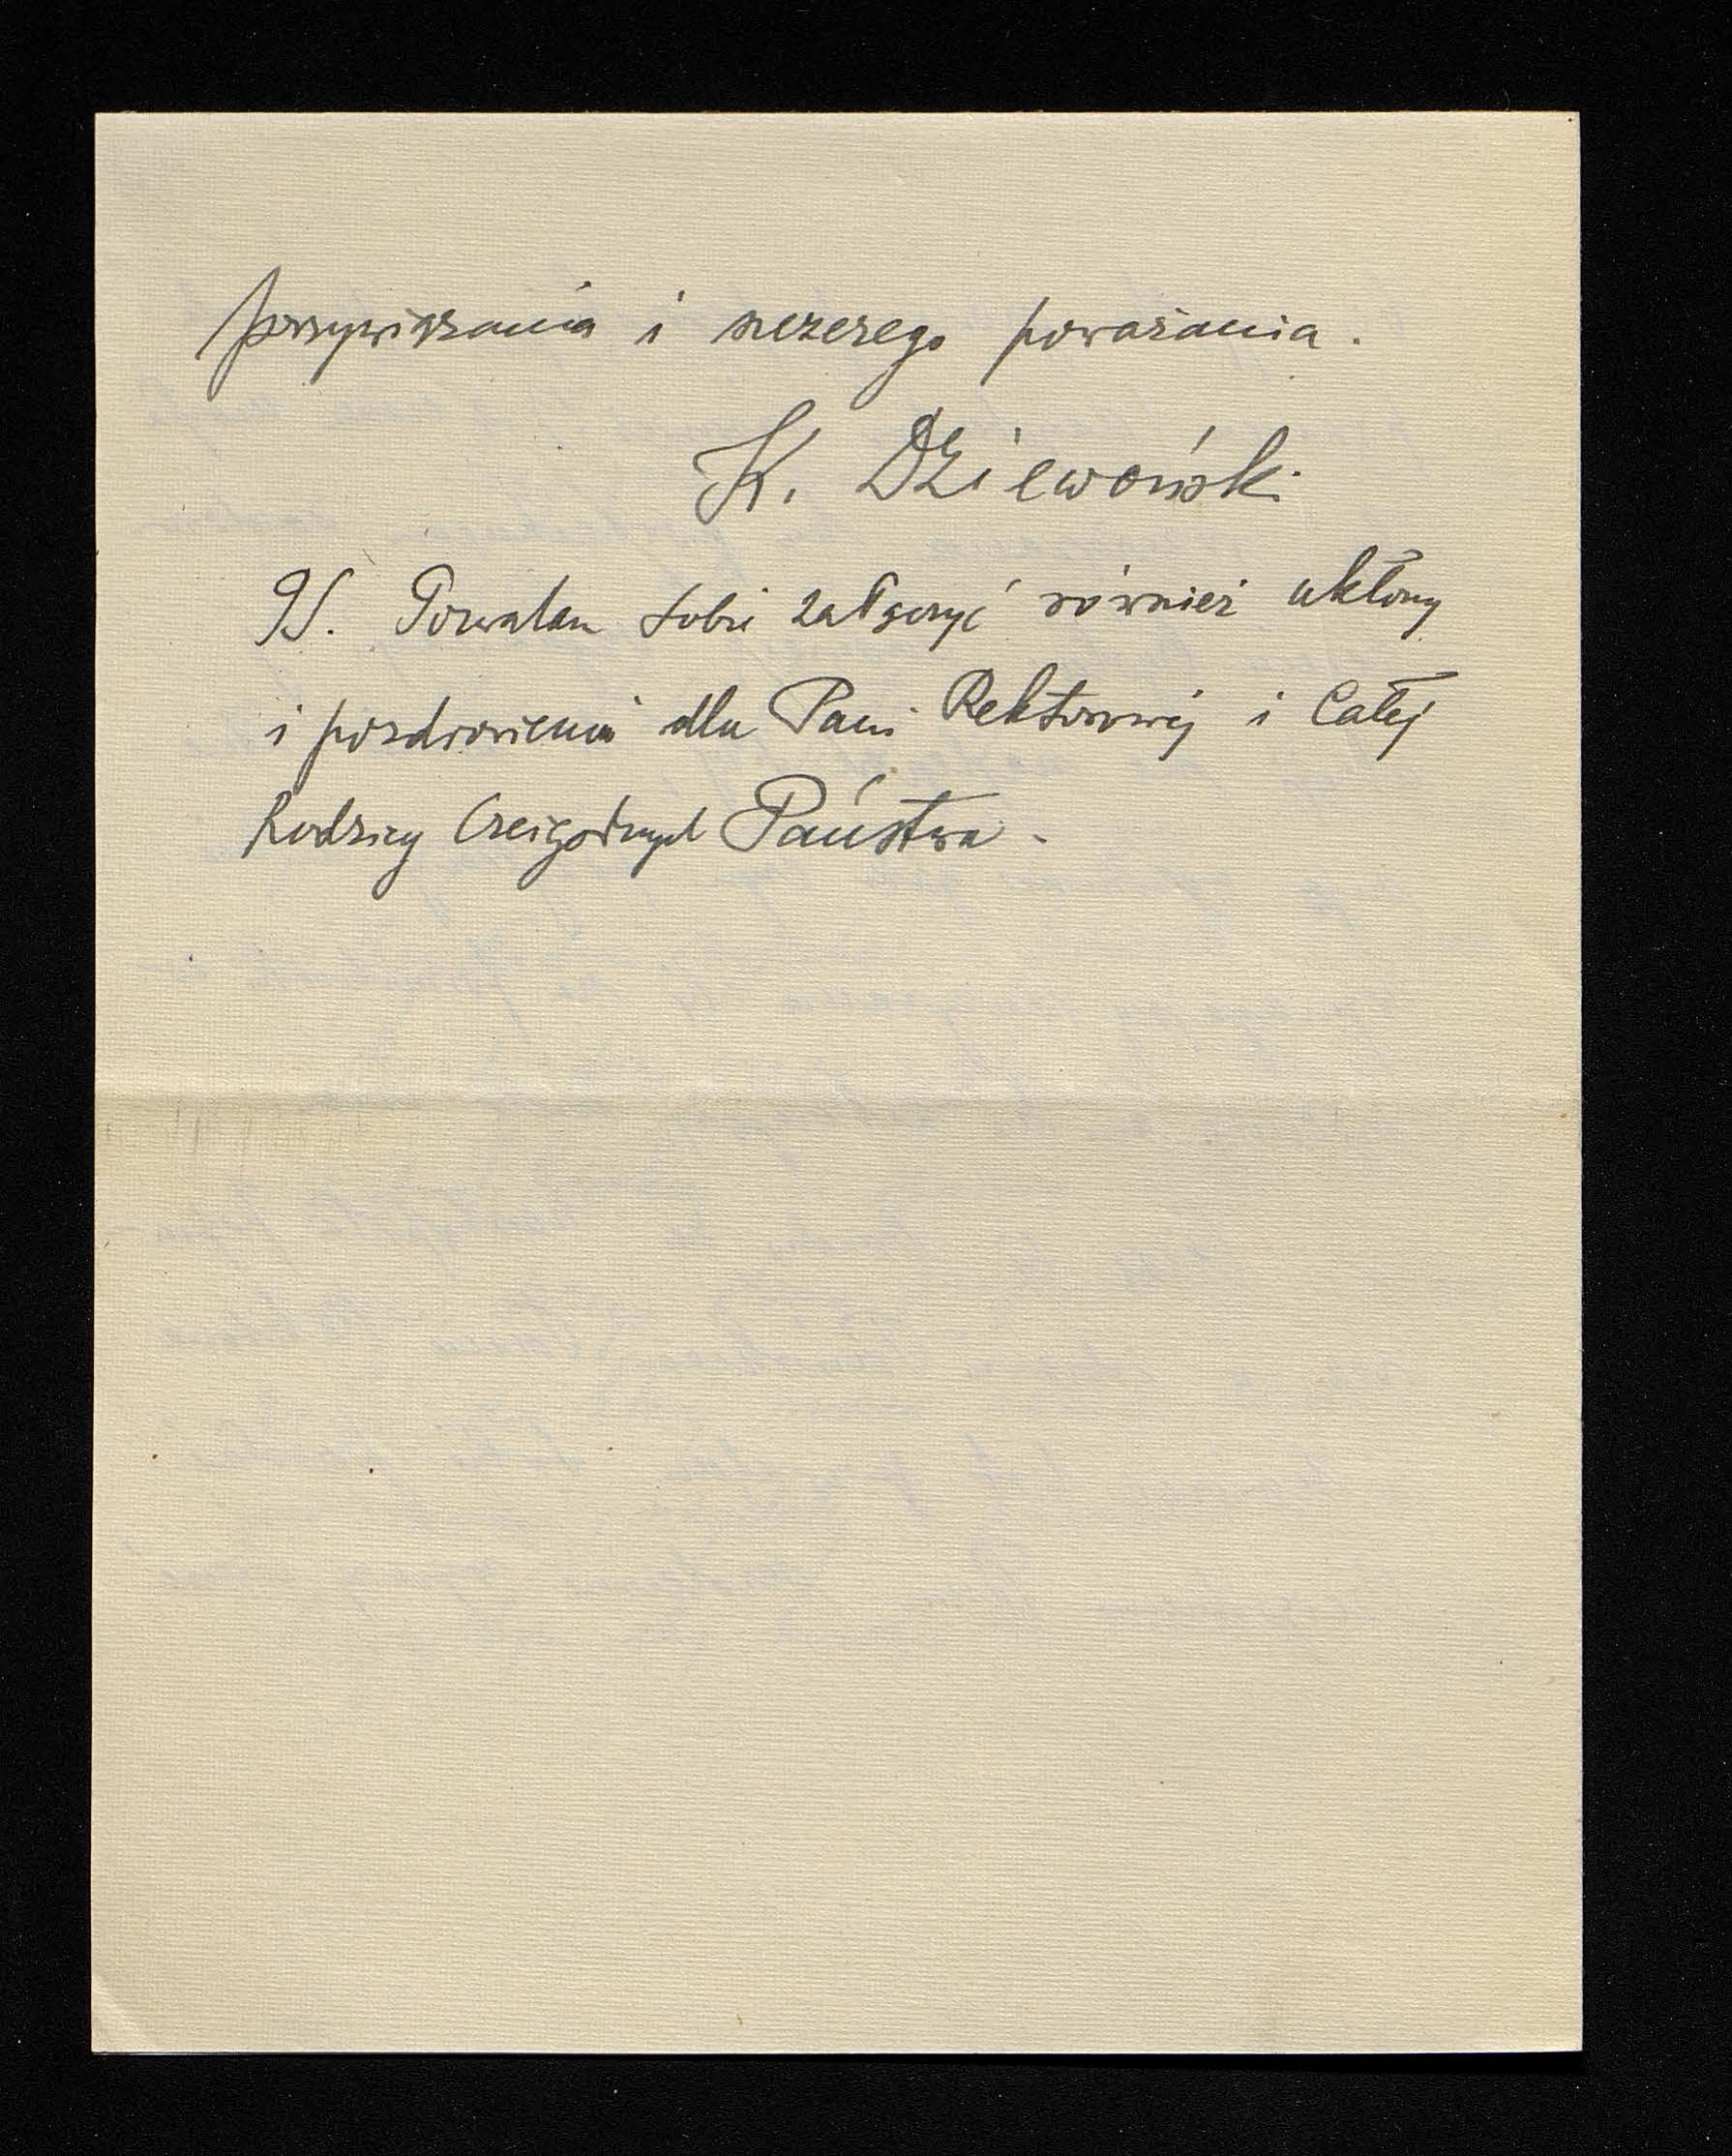 przywiązania i szczerego poważania.
K. Dziewoński
PS. Pozwalam sobie załączyć również ukłony
i pozdrowienia dla Pani Rektorowej i Całej
Rodziny Czcigodnych Państwa.